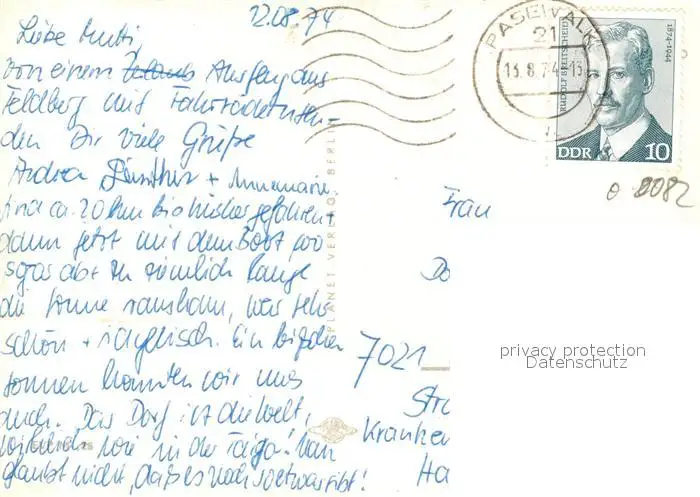 12.08.74
Liebe Mutti
von einem Ausflug aus
Feldberg mit Fahrrad
den Dir viele Grüße
Andrea Günther + Annemarie.
Sind ca. 20 km bisher gefahren +
dann jetzt mit dem Boot wo
sogar ab + zu ziemlich lange
die Sonne rauskam, war sehr
schön + idyllisch. Ein bißchen
sonnen konnten wir uns
auch. Das Dorf ist die Welt,
wirklich wie in der Taiga! Man
glaubt nicht, daß es noch so etwas gibt!
PLANET VERLAG BERLIN
PASEWALK
21
13.8.74-13
RUDOLF BREITSCHEID
1874-1944
DDR 10
0 8082
Frau
Do
7021
Str
Kranken
Ha
privacy protection
Datenschutz